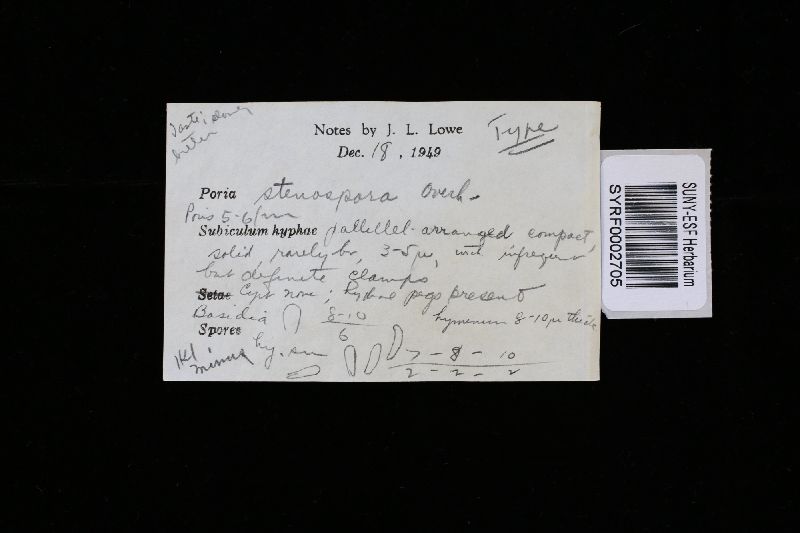 Taste; slowly
bitter
Notes by J. L. Lowe
Type
Dec. 18, 1949
Poria stenospora Overh.
Pores 5-6/mm
Subiculum hyphae parallel-arranged compact,
solid, rarely br., 3-5μ, with infrequent
but definite clamps
Setae Cyst none; hyphal pegs present
Basidia 8-10
6
hymenium 8-10μ thick
Spores
hy, sm
7 - 8 - 10
2 - 2 - 2
IKI
minus
SUNY-ESF Herbarium
SYRF0002705